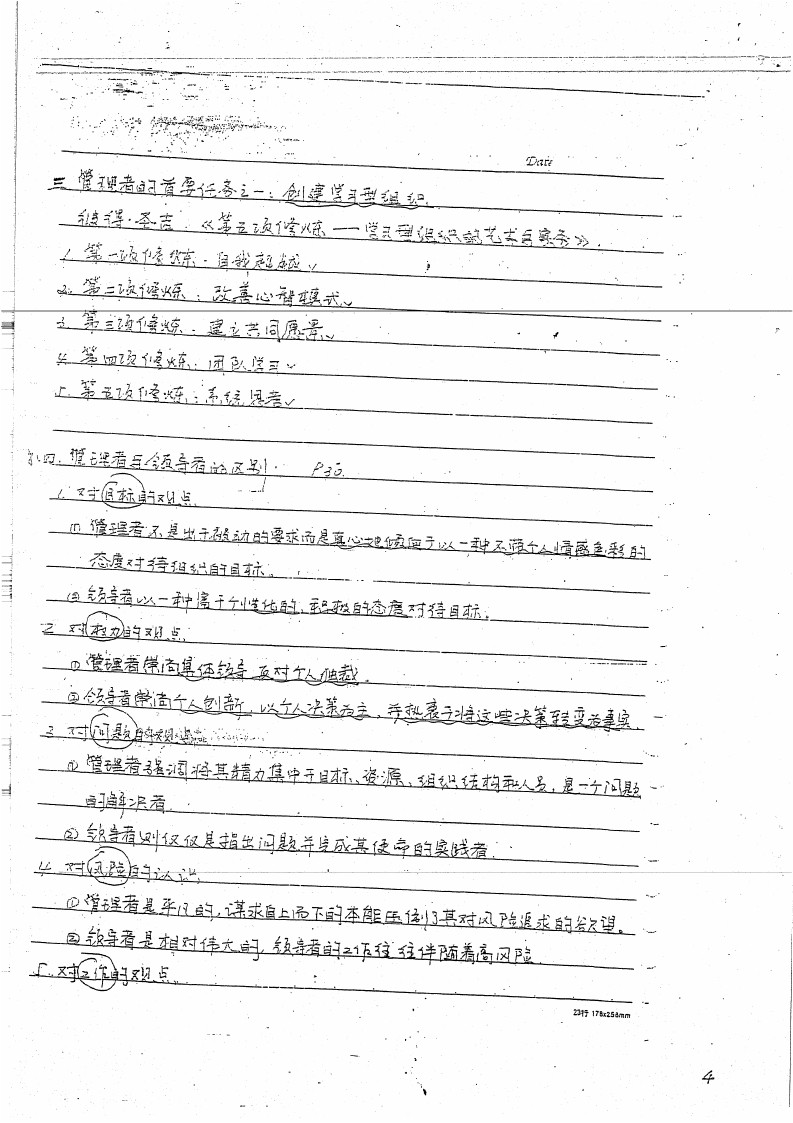 Date
三 管理者的首要任务之一：创建学习型组织.
彼得·圣吉 《第五项修炼——学习型组织的艺术与实务》.
1. 第一项修炼：自我超越✓
2. 第二项修炼：改善心智模式✓
3. 第三项修炼：建立共同愿景✓
4. 第四项修炼：团队学习✓
5. 第五项修炼：系统思考✓
四. 管理者与领导者的区别. P30.
1. 对目标的观点
① 管理者不是出于被动的要求而是真心地倾向于以一种不带个人情感色彩的
态度对待组织的目标.
② 领导者以一种富于个性化的、积极的态度对待目标.
2. 对权力的观点
① 管理者崇尚集体领导 反对个人独裁.
② 领导者崇尚个人创新, 以个人决策为主, 并热衷于将这些决策转变为事实.
3. 对问题的观点
① 管理者强调将其精力集中于目标、资源、组织结构和人员, 是一个问题
的解决者.
② 领导者则仅仅是指出问题并完成其使命的实践者.
4. 对风险的认识
① 管理者是平凡的, 谋求自上而下的本能压倒了其对风险追求的欲望。
② 领导者是相对伟大的, 领导者的工作往往伴随着高风险
5. 对工作的观点
23行 178x258mm
4